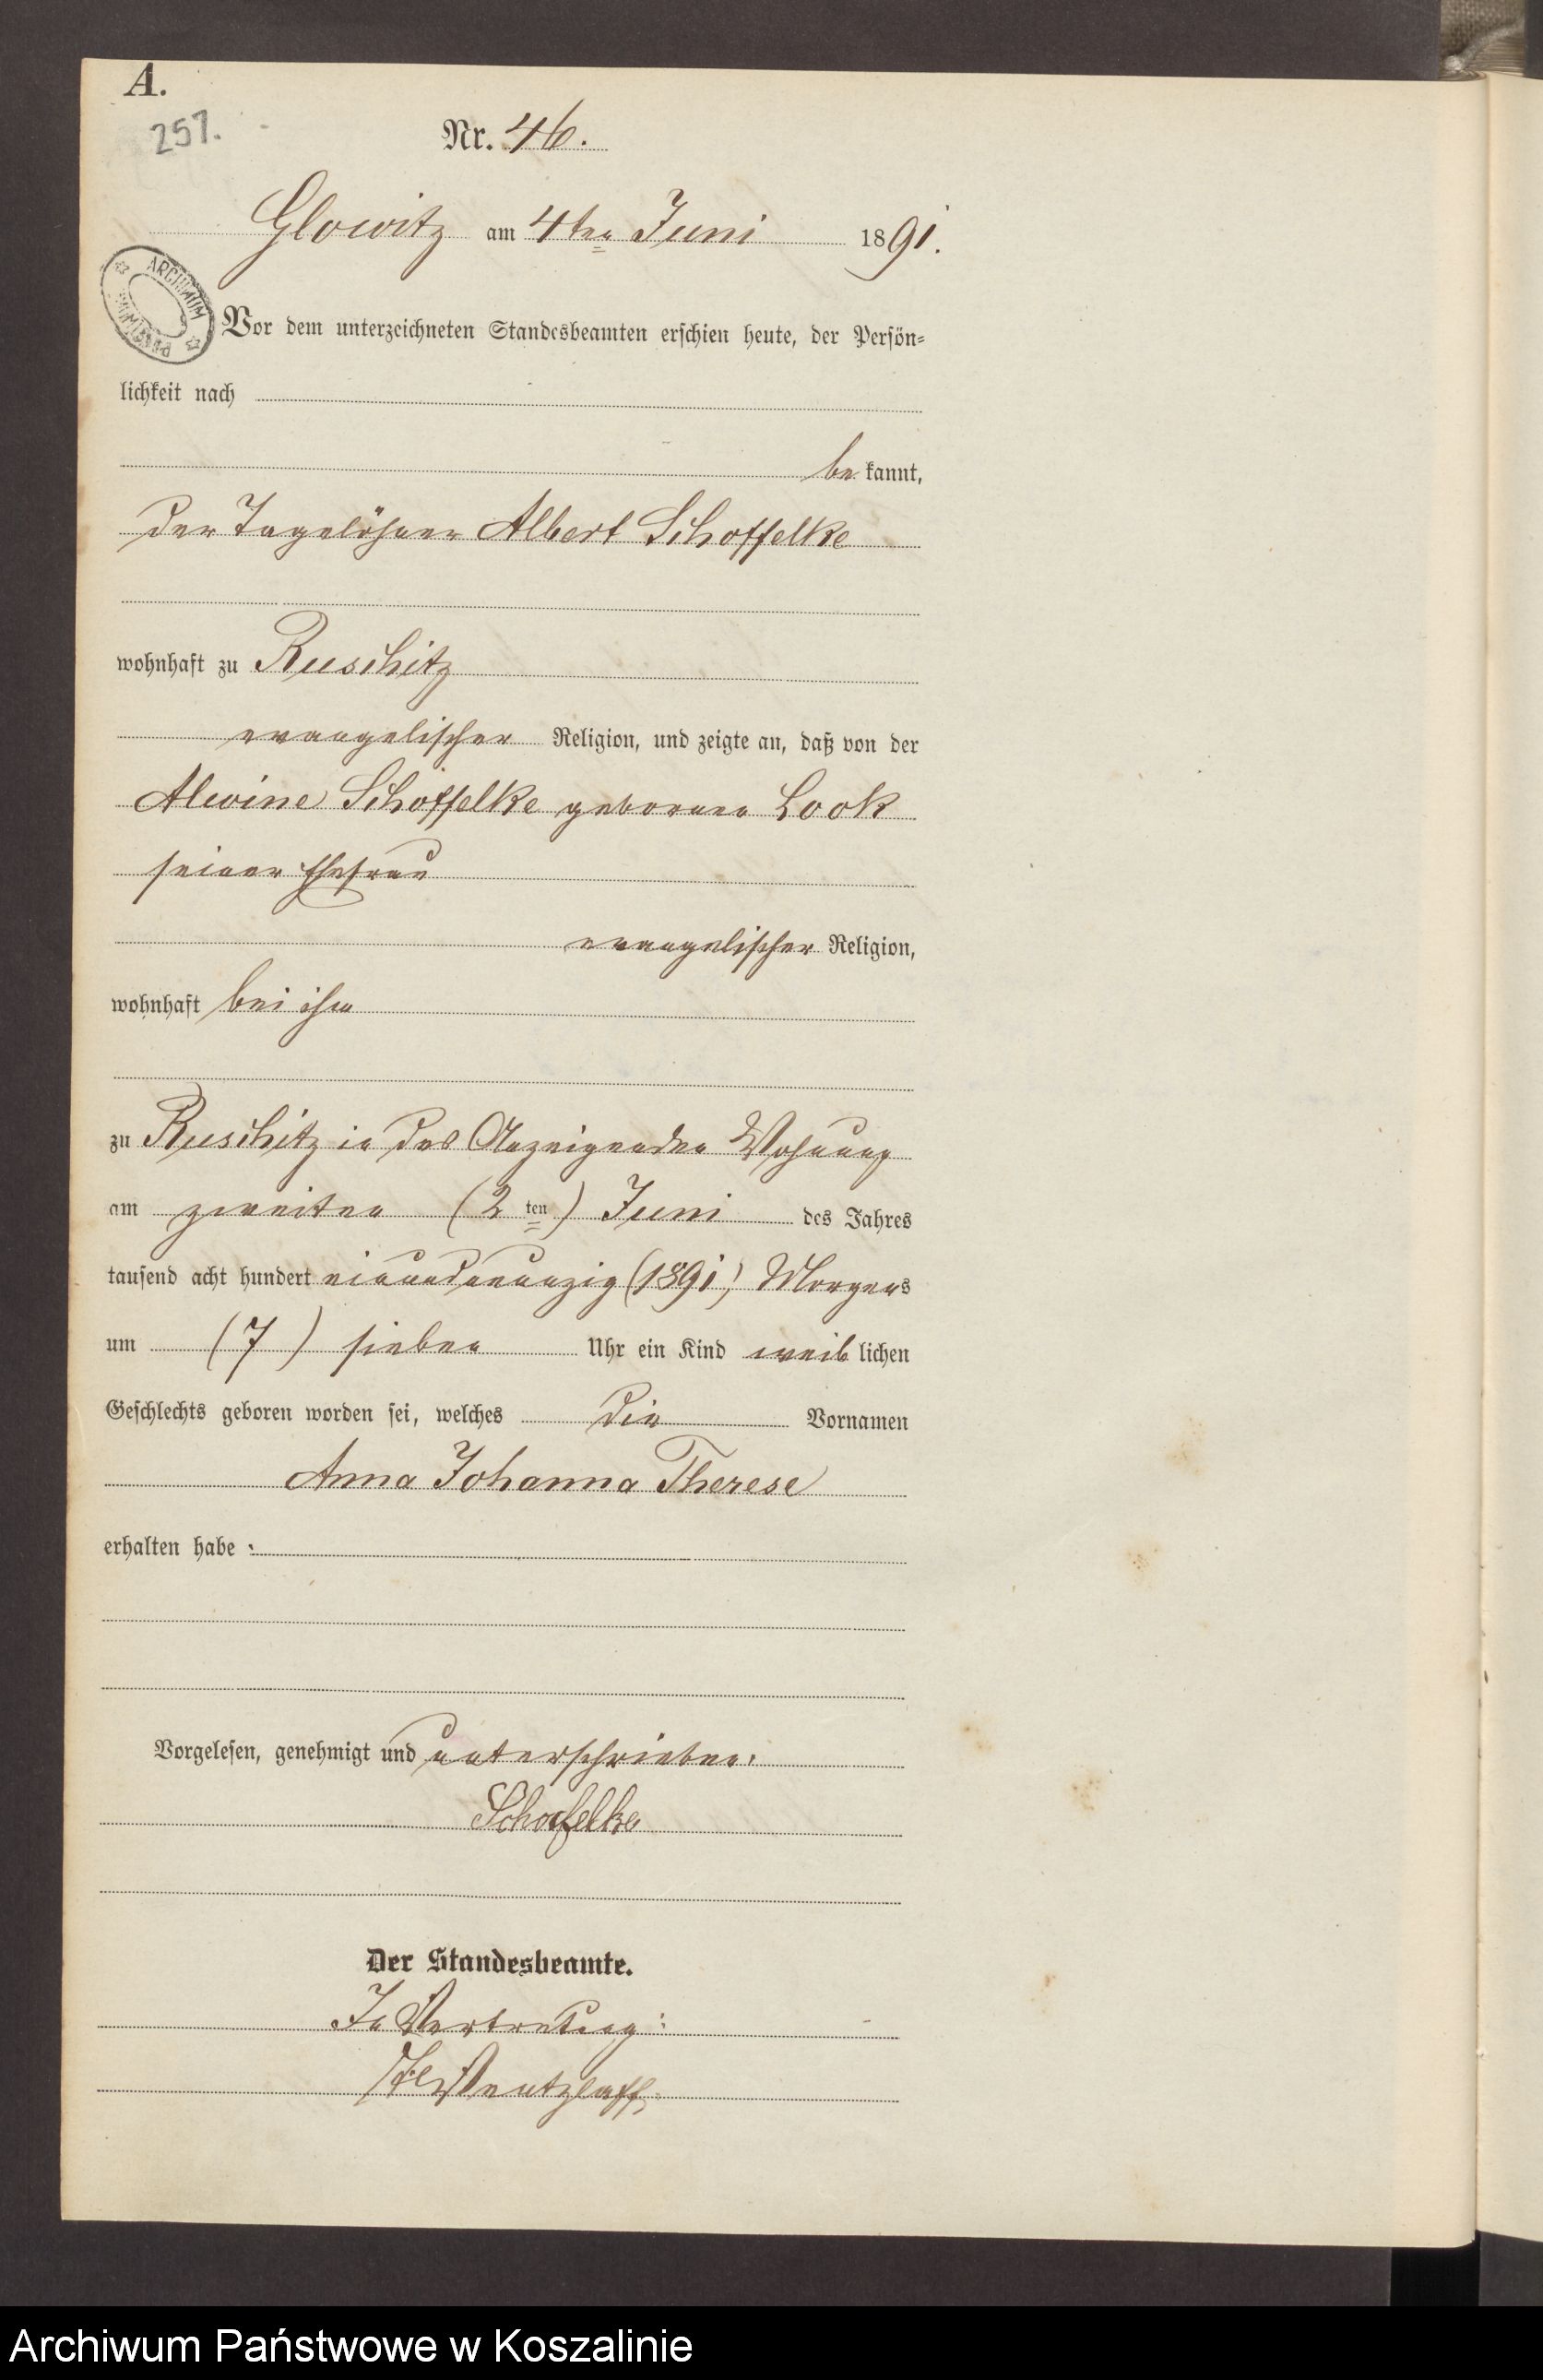 A.
257.
Nr. 46.
Glowitz am 4ten Juni 1891.
ARCHIWUM PAŃSTWOWE
Vor dem unterzeichneten Standesbeamten erschien heute, der Persön-
lichkeit nach
be kannt,
der Tagelöhner Albert Schoffelke
wohnhaft zu Ruschitz
evangelischer Religion, und zeigte an, daß von der
Alwine Schoffelke geborenen Look
seiner Ehefrau
evangelischer Religion,
wohnhaft bei ihm
zu Ruschitz in des Anzeigenden Wohnung
am zweiten (2ten) Juni des Jahres
tausend acht hundert einundneunzig (1891) Morgens
um (7) sieben Uhr ein Kind weib lichen
Geschlechts geboren worden sei, welches die Vornamen
Anna Johanna Therese
erhalten habe.
Vorgelesen, genehmigt und unterschrieben.
Schoffelke
Der Standesbeamte.
In Vertretung:
Wentzlaff.
Archiwum Państwowe w Koszalinie